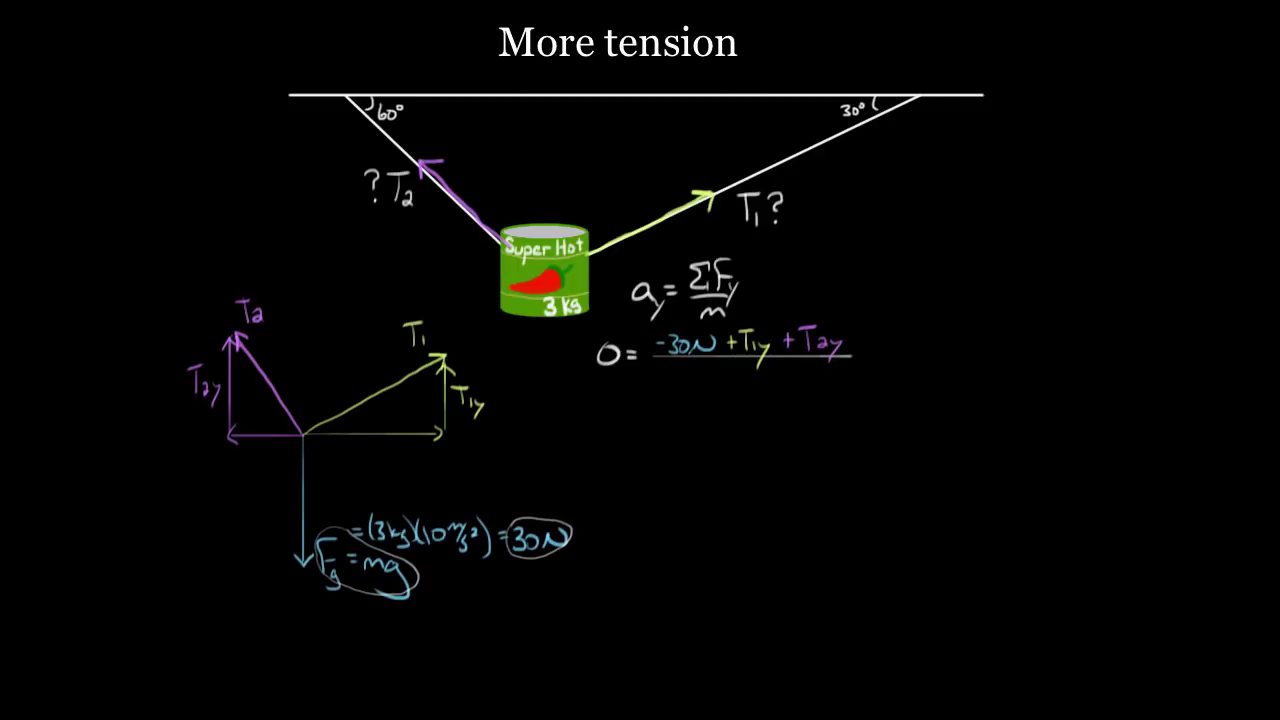 More tension
60°
30°
? T₂
T₁ ?
Super Hot
3 kg
a_y = ΣF_y / m
0 = -30N + T₁y + T₂y
T₂
T₁
T₂y
T₁y
= (3kg)(10 m/s²) = 30N
F_g = mg